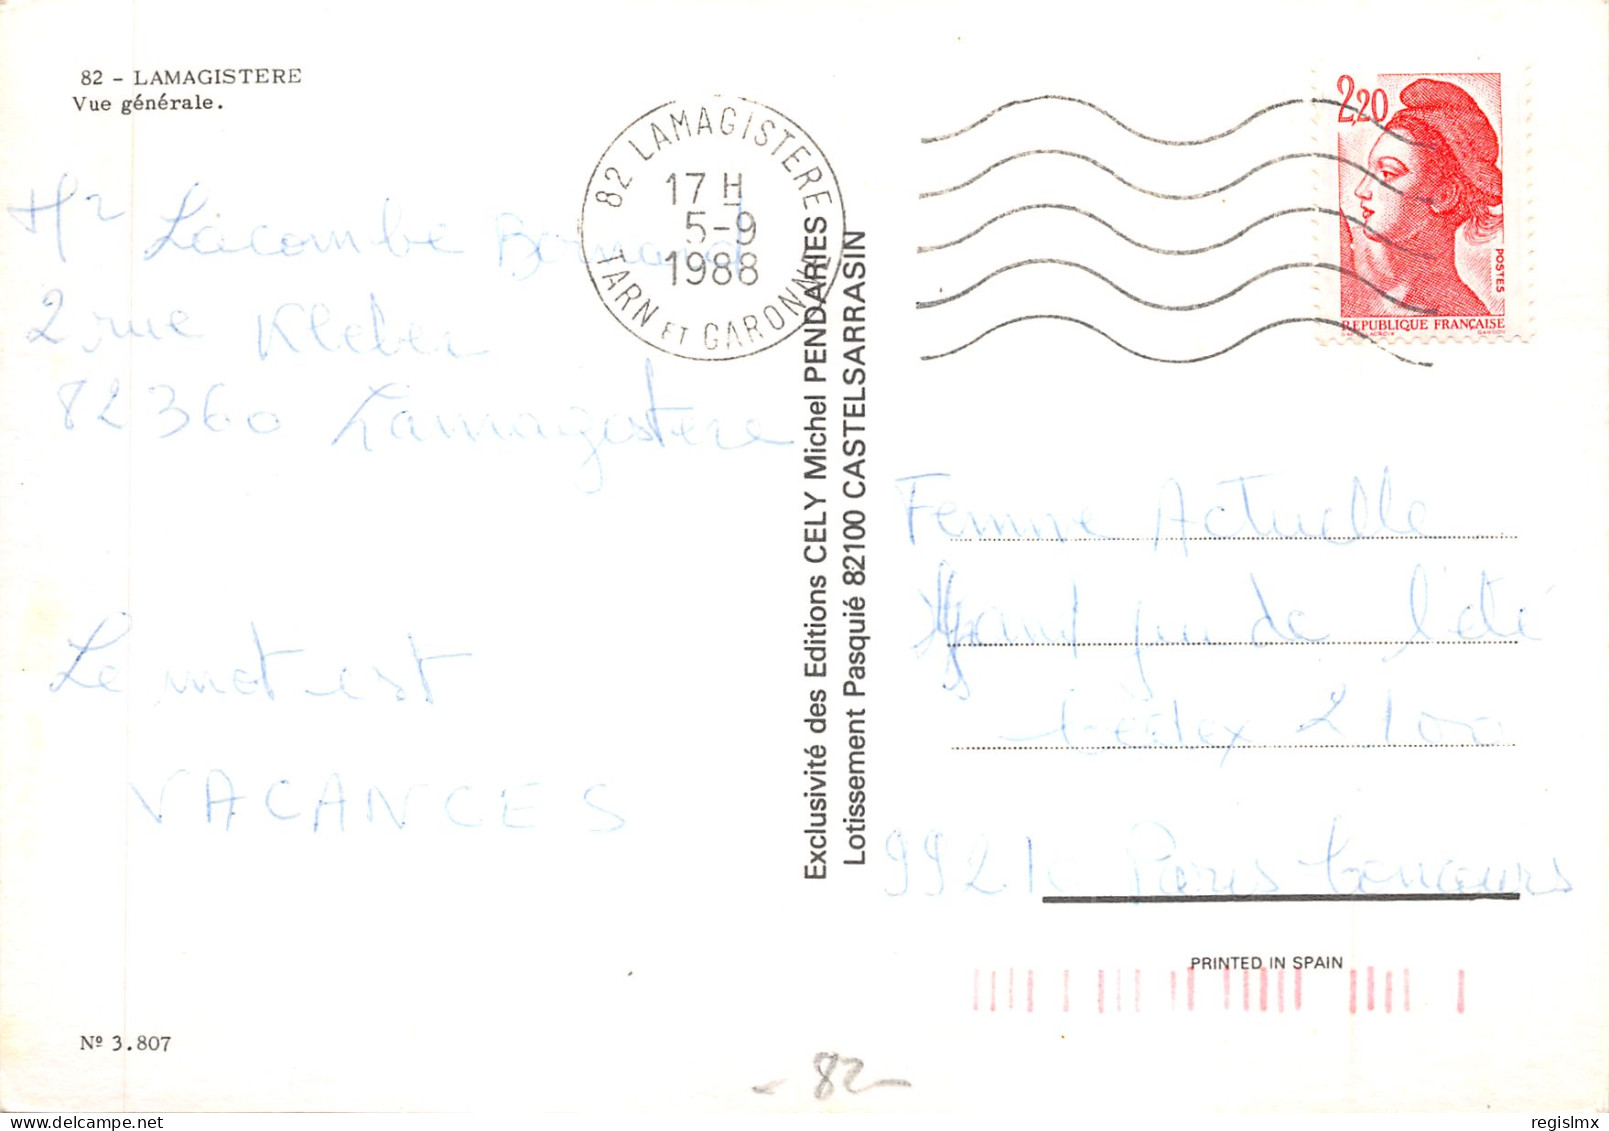 82 - LAMAGISTERE
Vue générale.
Mr Lacombe Bernard
2 rue Kleber
82360 Lamagistere
Le mot est
VACANCES
Nº 3.807
82 LAMAGISTERE
17 H
5-9
1988
TARN ET GARONNE
Exclusivité des Editions CELY Michel PENDARIES
Lotissement Pasquié 82100 CASTELSARRASIN
2,20
POSTES
REPUBLIQUE FRANÇAISE
Femme Actuelle
Grand jeu de l'été
Cedex 2100
9921 Paris Concours
PRINTED IN SPAIN
- 82 -
regislmx